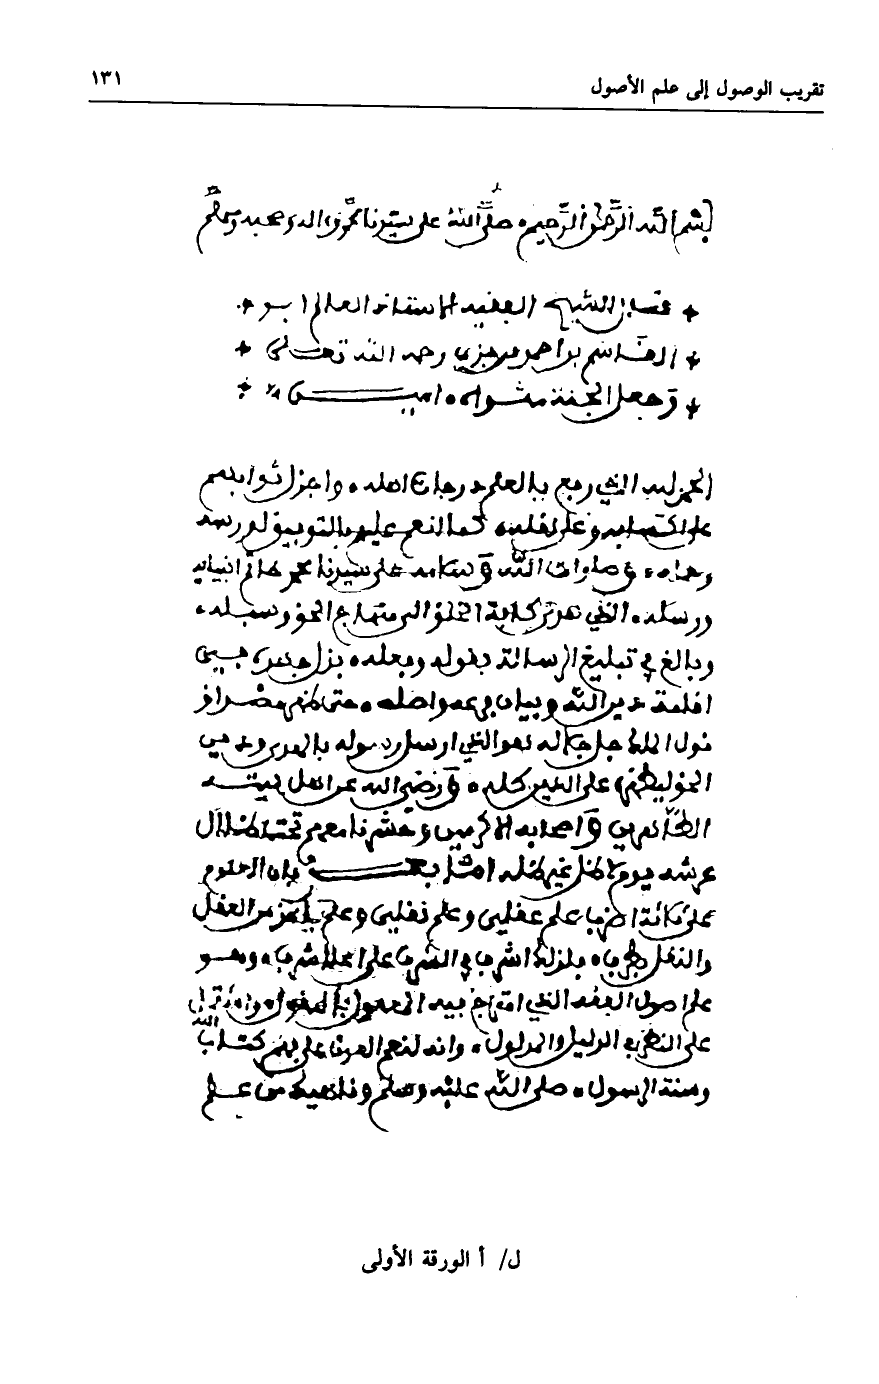 تقريب الوصول إلى علم الأصول
١٣١
بسم الله الرحمن الرحيم، صلى الله على سيدنا محمد وآله وصحبه وسلم
الشيخ الفقيه الاستاذ العالم ابو
القاسم بن احمد بن جزي رحمه الله تعالى
وجعل الجنة مثواه، امين
الحمد لله الذي رفع بالعلم درجات اهله، واجزل ثوابهم
على اكتسابه وعلى نقله، كما انعم عليهم بالتوفيق لدرسه
وحمله، وصلوات الله وسلامه على سيدنا محمد خاتم انبيائه
ورسله، الذي هدى كافة الخلق الى منهاج الحق وسبله،
وبالغ في تبليغ الرسالة بقوله وفعله، بذل جهده في
اقامة دين الله وبيان واصله، حتى ظهر مصداق
قول الملك جل جلاله هو الذي ارسل رسوله بالهدى ودين
الحق ليظهره على الدين كله، ورضي الله عن اهل بيته
الطاهرين واصحابه الاكرمين وحشرنا معهم تحت ظلال
عرشه يوم لا ظل غير ظله، اما بعد فان العلوم
على ثلاثة اضرب علم عقلي وعلم نقلي وعلم ياخذ من العقل
والنقل بطرف، فلذلك اشرف في الشرف على اعلا شرف، وهو
علم اصول الفقه الذي امتزج فيه المعقول بالمنقول
على النظر في الدليل والمدلول، وانه لنعم العون على فهم كتاب الله
وسنة الرسول، صلى الله عليه وسلم وناهيك من علم
ل/ أ الورقة الأولى